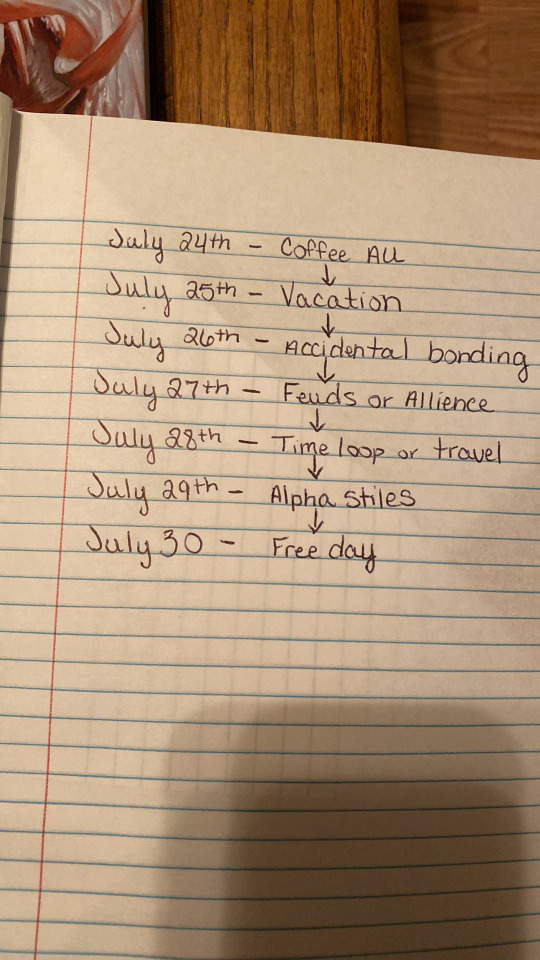 July 24th - Coffee AU
↓
July 25th - Vacation
↓
July 26th - Accidental bonding
↓
July 27th - Feuds or Allience
↓
July 28th - Time loop or travel
↓
July 29th - Alpha stiles
↓
July 30 - Free day